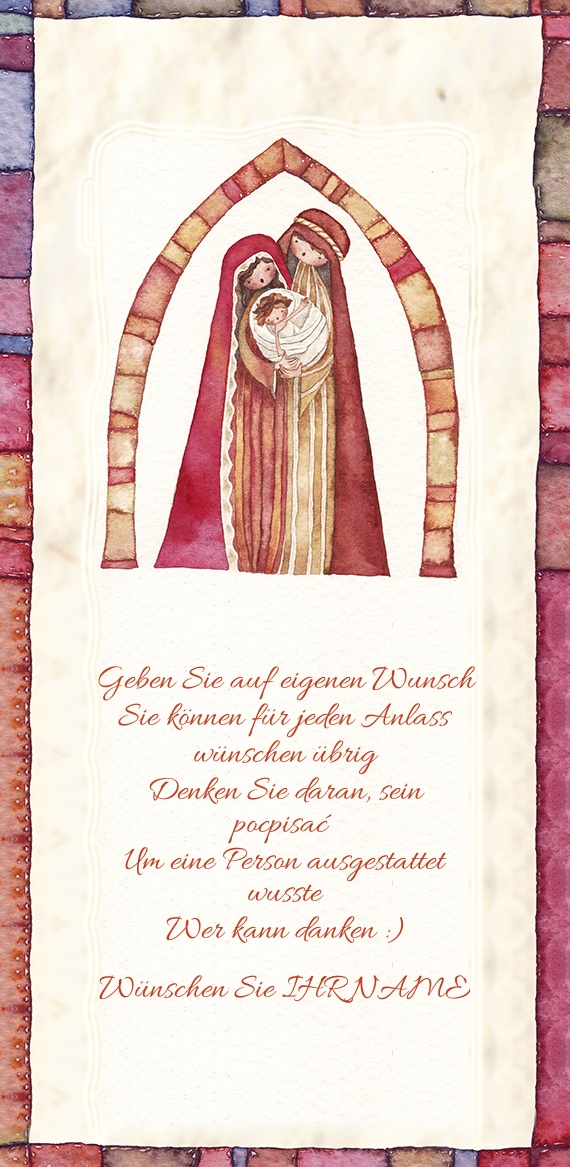 Geben Sie auf eigenen Wunsch
Sie können für jeden Anlass
wünschen übrig
Denken Sie daran, sein
pocpisać
Um eine Person ausgestattet
wusste
Wer kann danken :)
Wünschen Sie IHRNAME